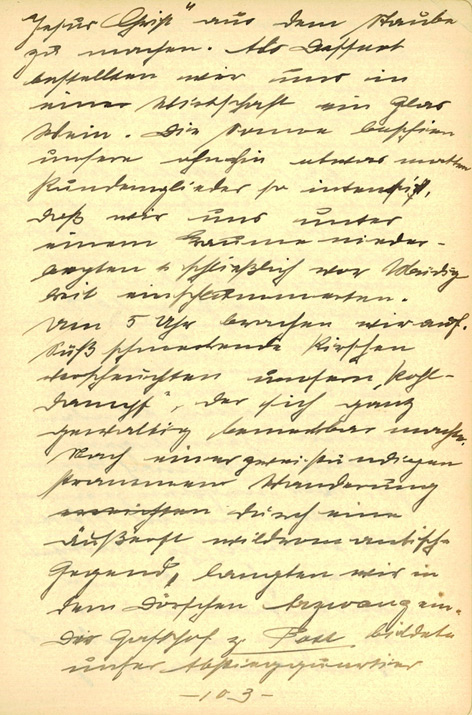 Geist" aus dem Staube
zu machen. Als Dessert
bestellten wir uns in
einer Wirtschaft ein Glas
Wein. Die Sonne beschien
unsere ohnehin etwas matten
so intensiv,
daß wir uns unter
einem Baume nieder-
legten & schließlich vor Müdig-
keit einschlummerten.
Um 5 Uhr brachen wir auf.
Süß schmeckende Kirschen
verscheuchten unsern „Kohl-
dampf", der sich ganz
gewaltig bemerkbar machte.
Nach einer zweistündigen
strammen Wanderung
erreichten durch eine
äußerst wildromantische
Gegend, langten wir in
dem Dörfchen Atzwang ein.
Der Gasthof z. Post bildete
unser Absteigquartier
-103-